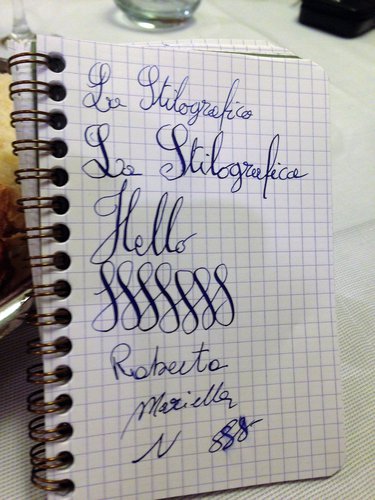 La Stilografica
La Stilografica
Hello
Roberto
Mariella
N